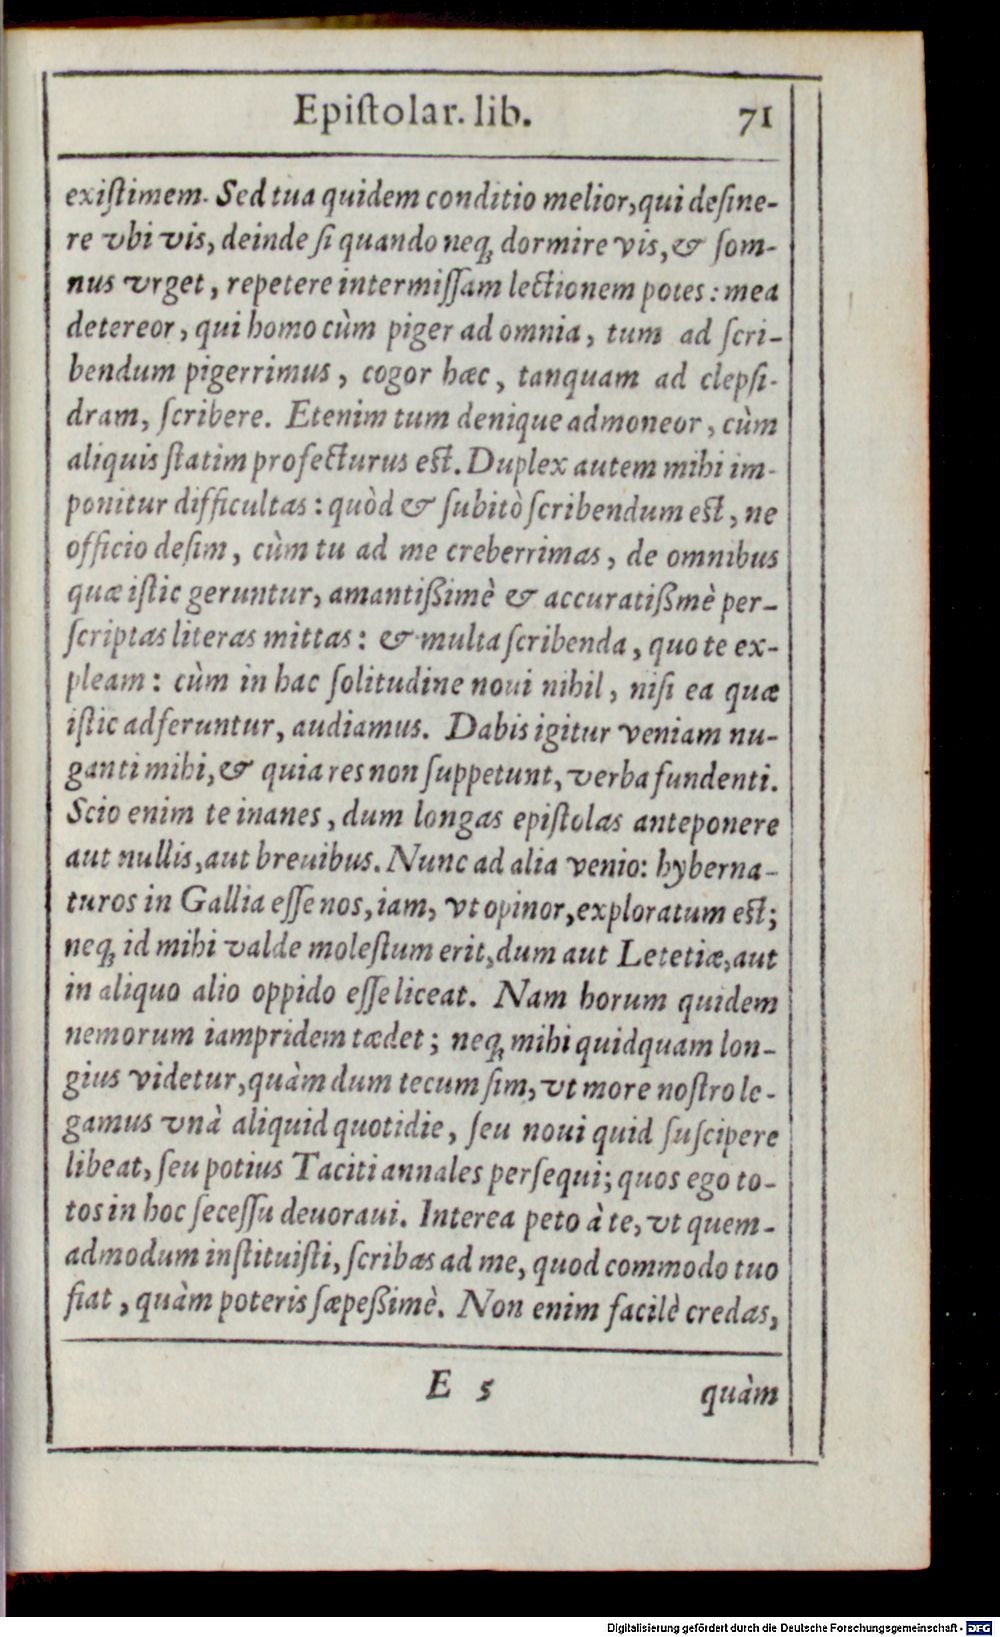 Epiſtolar. lib. 71
exiſtimem. Sed tua quidem conditio melior, qui deſine-
re vbi vis, deinde ſi quando neq; dormire vis, & ſom-
nus vrget, repetere intermiſſam lectionem potes: mea
detereor, qui homo cùm piger ad omnia, tum ad ſcri-
bendum pigerrimus, cogor hæc, tanquam ad clepſi-
dram, ſcribere. Etenim tum denique admoneor, cùm
aliquis ſtatim profecturus est. Duplex autem mihi im-
ponitur difficultas: quòd & ſubitò ſcribendum est, ne
officio deſim, cùm tu ad me creberrimas, de omnibus
quæ iſtic geruntur, amantißimè & accuratißmè per-
ſcriptas literas mittas: & multa ſcribenda, quo te ex-
pleam: cùm in hac ſolitudine noui nihil, niſi ea quæ
iſtic adferuntur, audiamus. Dabis igitur veniam nu-
ganti mihi, & quia res non ſuppetunt, verba fundenti.
Scio enim te inanes, dum longas epiſtolas anteponere
aut nullis, aut breuibus. Nunc ad alia venio: hyberna-
turos in Gallia eſſe nos, iam, vt opinor, exploratum est;
neq; id mihi valde moleſtum erit, dum aut Letetiæ, aut
in aliquo alio oppido eſſe liceat. Nam horum quidem
nemorum iampridem tædet; neq; mihi quidquam lon-
gius videtur, quàm dum tecum ſim, vt more noſtro le-
gamus vnà aliquid quotidie, ſeu noui quid ſuſcipere
libeat, ſeu potius Taciti annales perſequi; quos ego to-
tos in hoc ſeceſſu deuoraui. Interea peto à te, vt quem-
admodum inſtituiſti, ſcribas ad me, quod commodo tuo
fiat, quàm poteris ſæpeßimè. Non enim facilè credas,
E 5 quàm
Digitalisierung gefördert durch die Deutsche Forschungsgemeinschaft - DFG